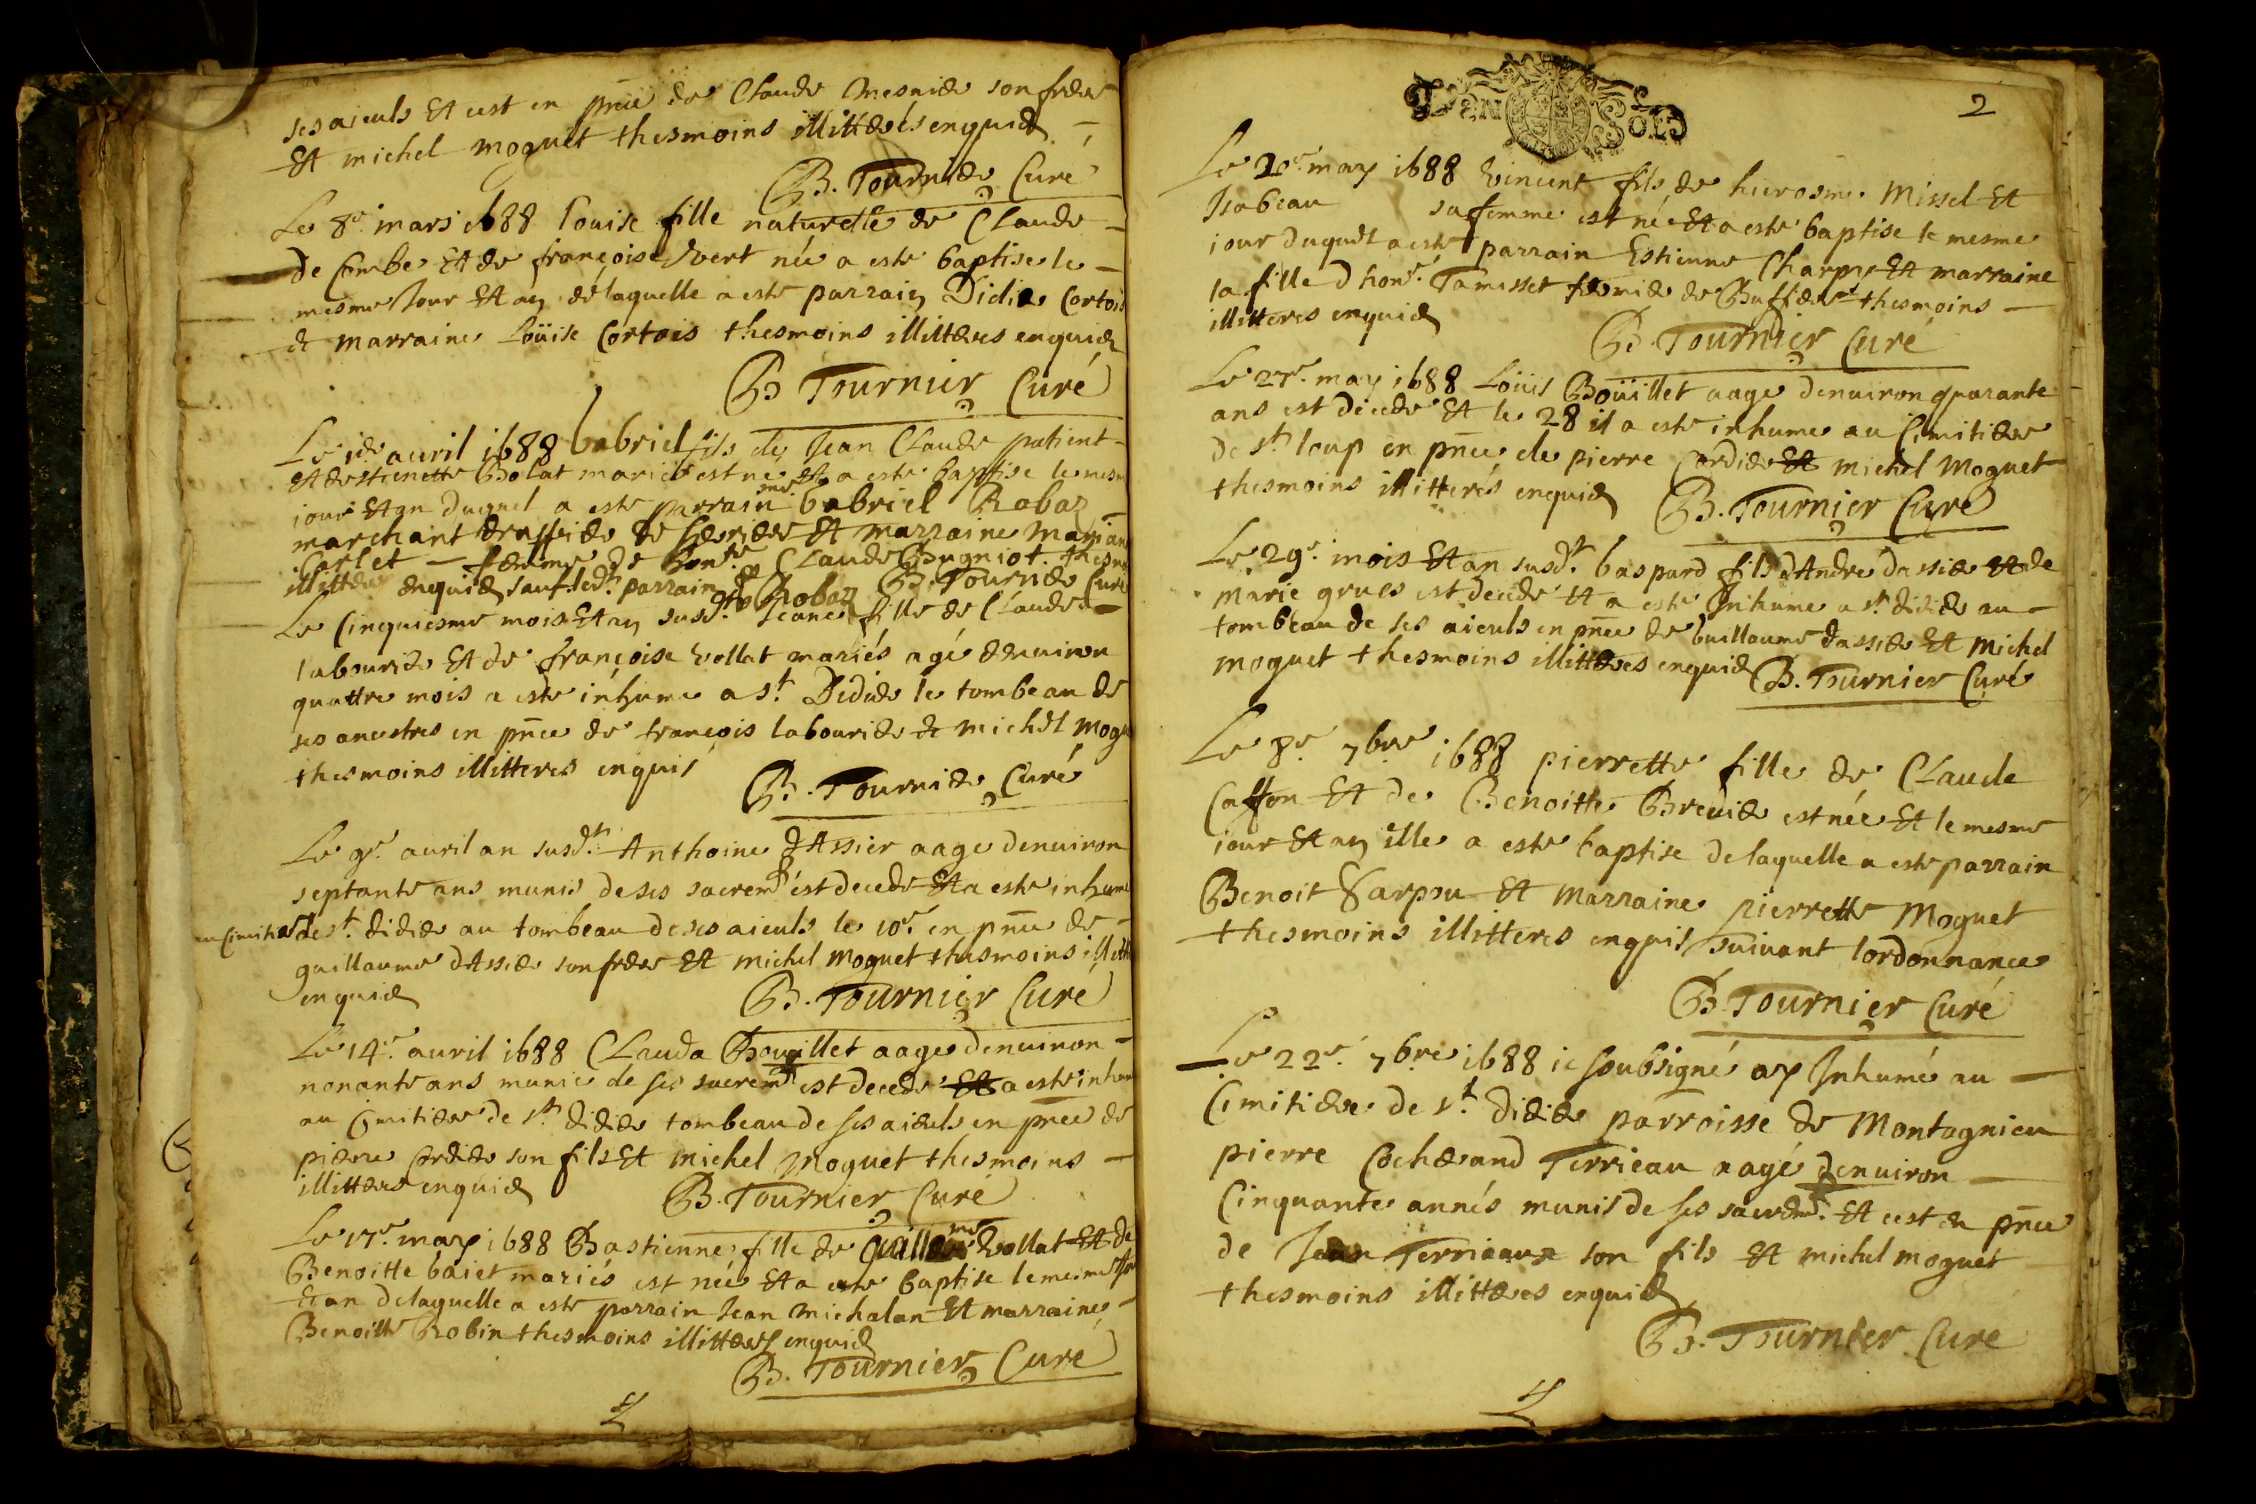 ses aieuls Et cest en pnce de Claude mesnier son frere
Et michel moquet thesmoins illitterés enquis
B. Tournier Curé
Le 8e mars 1688 Louise fille naturelle de Claude
de Combe Et de françoise vert née a este baptise le
mesme Jour Et an de laquelle a este parrain Didier Cortois
& marraine Loüise Cortois thesmoins illitteres enquis
B Tournier Curé
Le 1er auril 1688 Gabriel fils de Jean Claude patient
Et destienette Bolat mariés est ne Et a este baptise le mesme
jour Et an duquel a este parrain Gabriel Robaz
marchant drappier de Et marraine
Carlet femme de hon.te Claude Bugniot thesm
illitteres enquis sauf ledt parrain Robaz B. Tournier Curé
Le Cinquiesme mois Et an susdt Jeane fille de Claude
labourier Et de françoise vollat mariés agé denuiron
quattre mois a este inhume a st. Didier le tombeau de
ses ancestres en pnce de françois labourier & michel moqu
thesmoins illitteres enquis
B. Tournier Curé
Le 9e. auril an susdt. Anthoine dAssier aage denuiron
septante ans munis de ses sacremts est decede Et a este inhume
au cimitiere de st. didier au tombeau de ses aieuls le 10e en pnce de
guillaume dAssier son frere Et michel moquet thesmoins illitte
enquis B. Tournier Curé
Le 14e. auril 1688 Clauda Bouillet aage denuiron
nonante ans munie de ses sacremts est decede Et a este inhum
au Cimitiere de st. didier tombeau de ses aieuls en pnce de
pierre Cordier son fils Et michel moquet thesmoins
illitteres enquis B. Tournier Curé
Le 17e. may 1688 Bastienne fille de guillme vollat Et de
Benoitte baiet mariés est née Et a este baptise le mesme Jour
Et an delaquelle a este parrain Jean michalan Et marraine
Benoitte Robin thesmoins illitteres enquis
B. Tournier Curé
2
DEN SOLS
Le 20e may 1688 vincent fils de hierosme Missel Et
Isabeau sa femme est né Et a este baptise le mesme
iour duquel a este parrain Estienne Charpy Et marraine
la fille dhon.e Tamisset fermier de Buffiere thesmoins
illitteres enquis B. Tournier Curé
Le 27e. may 1688 Loüis Boüillet aage denuiron quarante
ans est decede Et le 28 il a este inhume au Cimitiere
de st loup en pnce de pierre Cordier Et michel Moquet
thesmoins illitterés enquis B. Tournier Curé
Le 29e. mois Et an susdt. Gaspard fils dAndré dassier Et de
Marie grues est decedé Et a este Inhume a st didier au
tombeau de ses aieuls en pnce de Guillaume dassier Et Michel
moquet thesmoins illitteres enquis B. Tournier Curé
Le 8e 7bre 1688 pierrette fille de Claude
Caffon Et de Benoitte Breuier est née Et le mesme
iour Et an ille a este baptise de laquelle a este parrain
Benoit Et marraine pierrette Moquet
thesmoins illitteres enquis suivant lordonnance
B. Tournier Curé
Le 22e. 7bre 1688 ie soubsigné ay Inhumé au
Cimitiere de st. didier parroisse de Montagnieu
pierre Cocherand Terrieau aagé denuiron
Cinquante annés munis de ses sacremts. Et cest en pnce
de Jean Terrieaux son fils Et michel moquet
thesmoins illitteres enquis
B. Tournier Curé